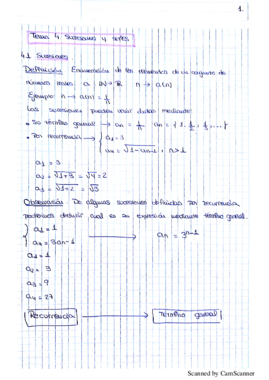 1.
Tema 4 Sucesiones y series
4.1 Sucesiones
Definición: Enumeración de los elementos de un conjunto de
números reales a: ℕ→ℝ n → a(n)
Ejemplo: n → a(n) = 1/n
Las sucesiones pueden venir dadas mediante:
• Su término general → an = 1/n, an = { 1, 1/2, 1/3, ... }
• Por recurrencia → { a1 = 3
an = √1+an-1, n>1
a1 = 3
a2 = √1+3 = √4 = 2
a3 = √1+2 = √3
Observación: De algunas sucesiones definidas por recurrencia
podremos deducir cual es su expresión mediante término general.
{ a1 = 1
an = 3an-1 → an = 3^n-1
a1 = 1
a2 = 3
a3 = 9
a4 = 27
Recurrencia → Término general
Scanned by CamScanner